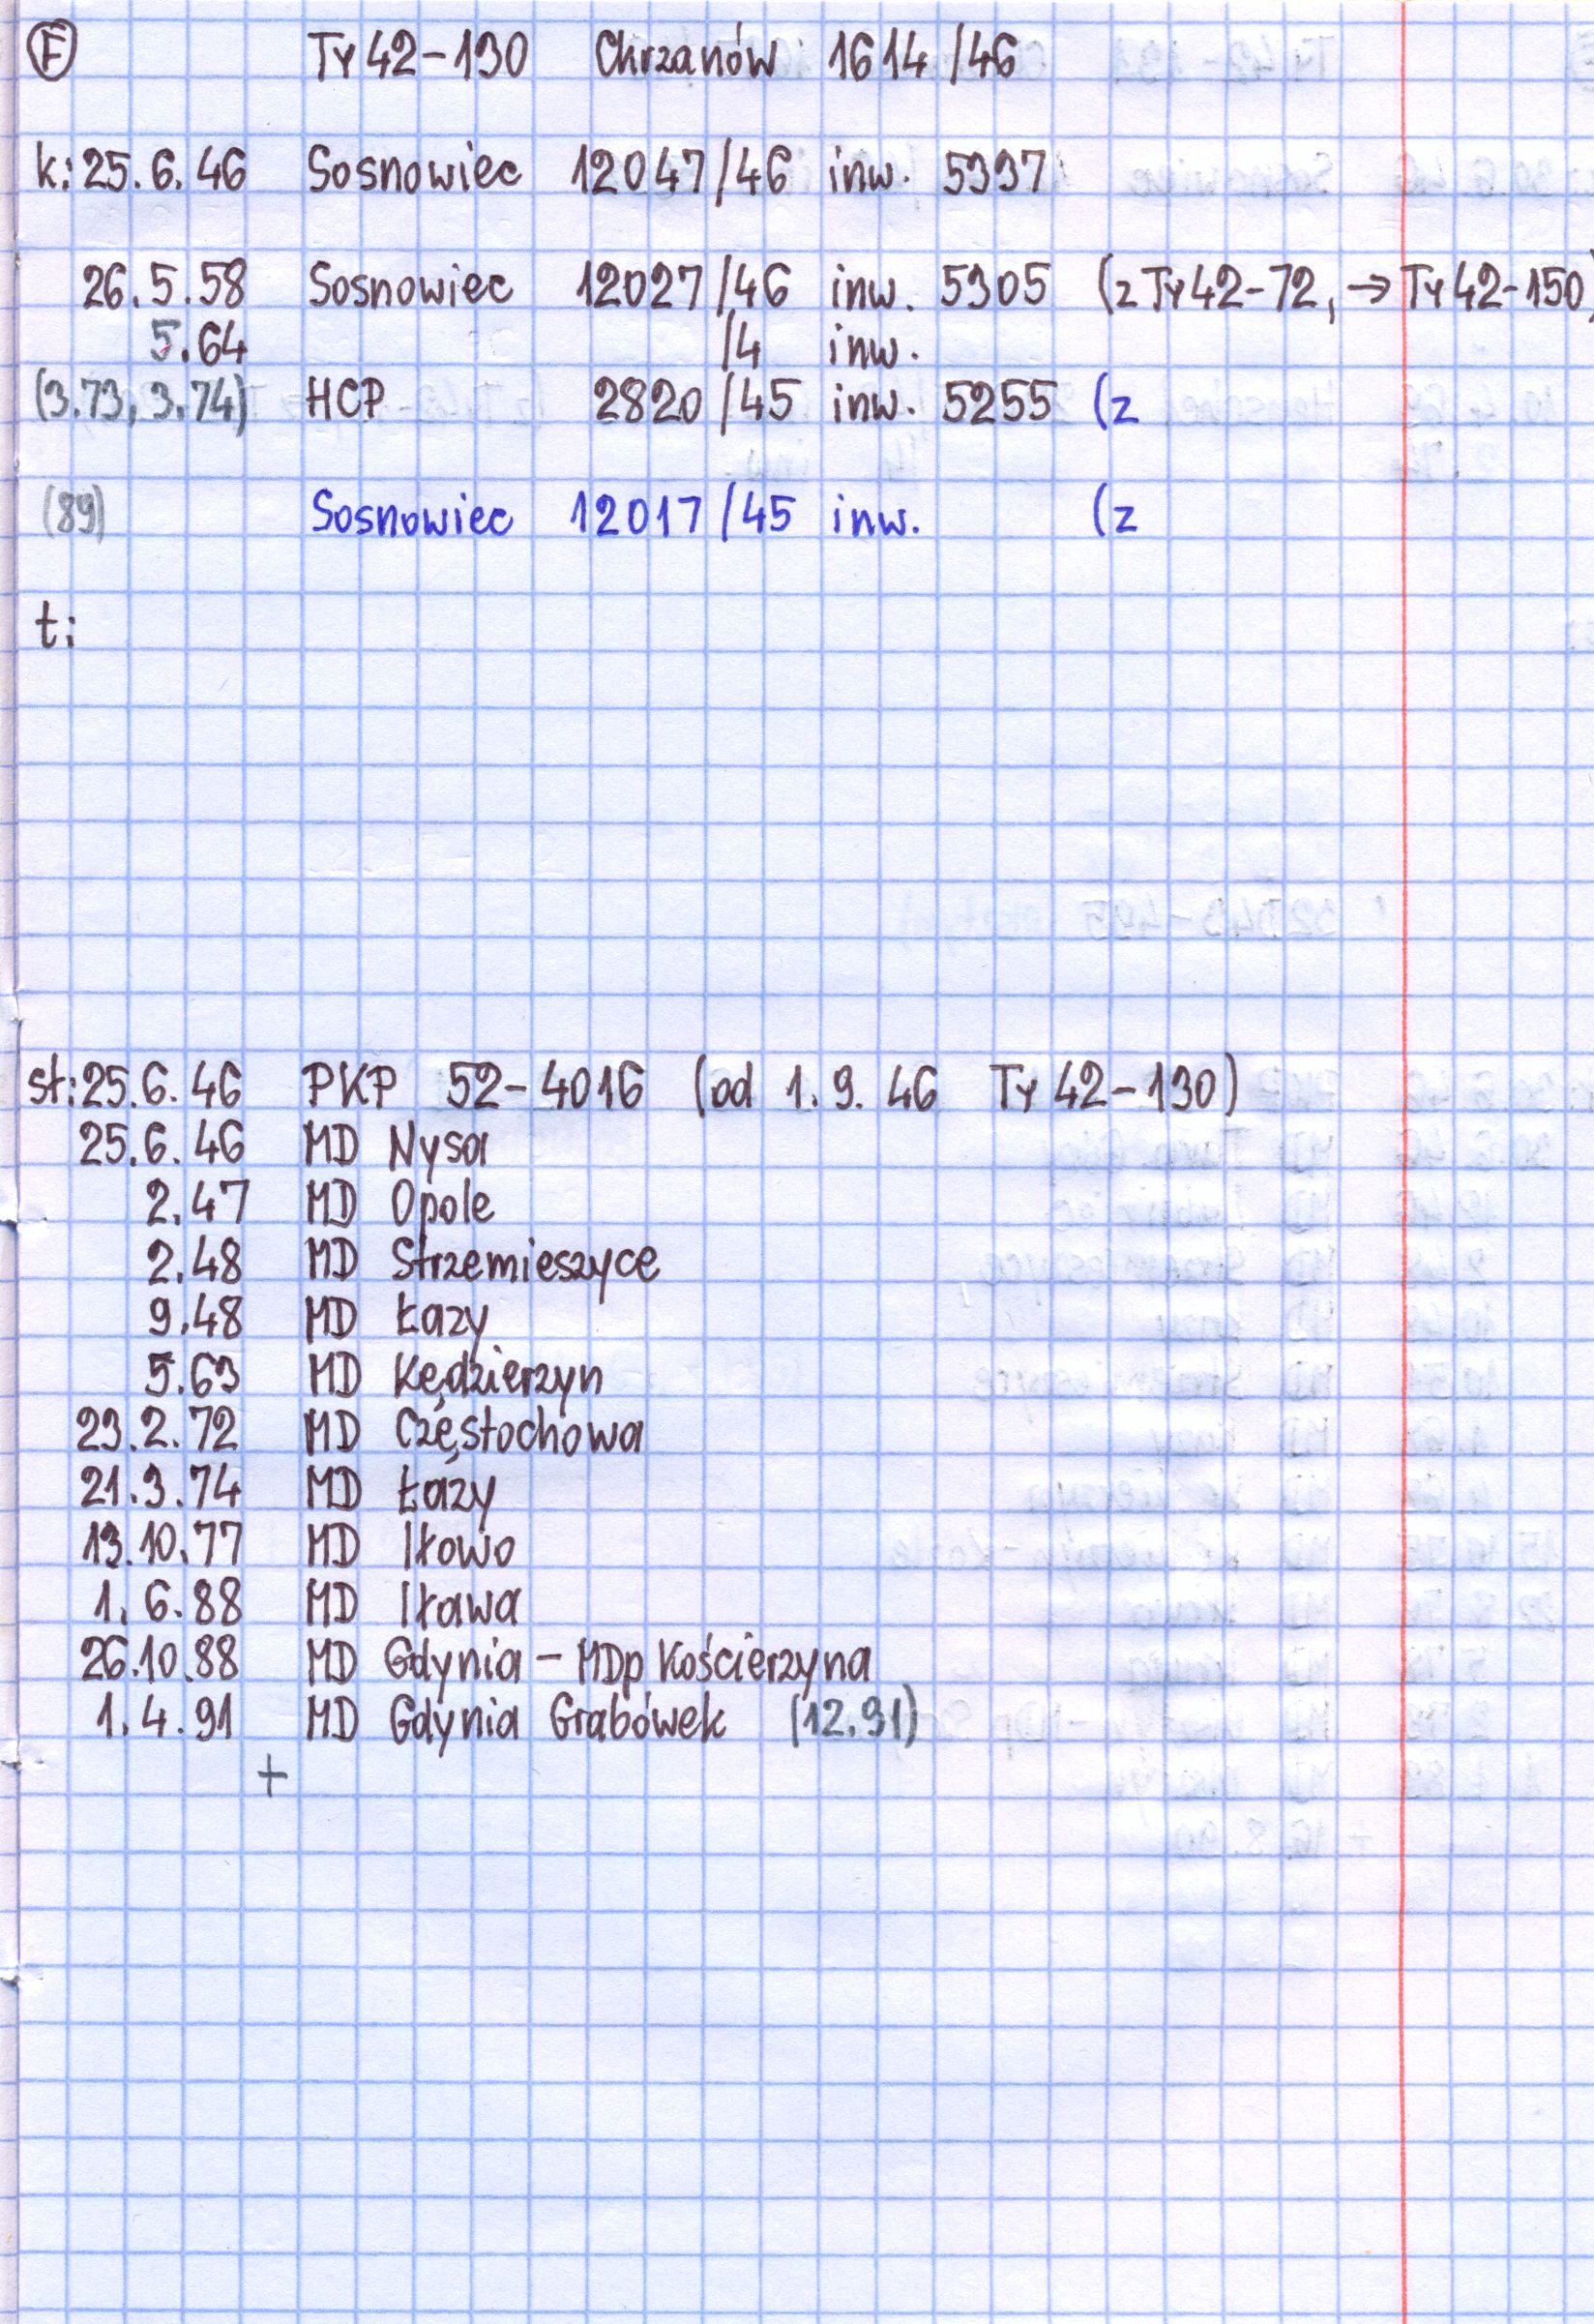 F Ty42-130 Chrzanów 1614/46
k: 25.6.46 Sosnowiec 12047/46 inw. 5397
26.5.58 Sosnowiec 12027/46 inw. 5305 (z Ty42-72, → Ty42-150)
5.64 /4 inw.
(3.73, 3.74) HCP 2820/45 inw. 5255 (z
(89) Sosnowiec 12017/45 inw. (z
t:
st: 25.6.46 PKP 52-4016 (od 1.9.46 Ty42-130)
25.6.46 MD Nysa
2.47 MD Opole
2.48 MD Strzemieszyce
9.48 MD Łazy
5.63 MD Kędzierzyn
23.2.72 MD Częstochowa
21.3.74 MD Łazy
13.10.77 MD Iłowo
1.6.88 MD Iława
26.10.88 MD Gdynia - MDp Kościerzyna
1.4.91 MD Gdynia Grabówek (12.91)
+